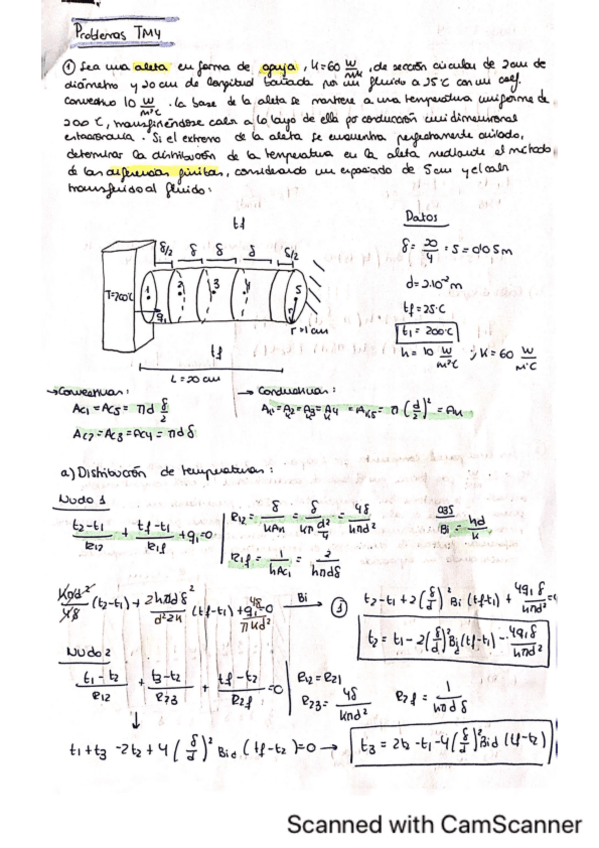 Problemas TMY
① Sea una aleta en forma de aguja, K=60 W/mK, de sección circular de 2cm de
diámetro y 20 cm de longitud bañada por un fluido a 25°C con un coef.
convectivo 10 W/m²°C. La base de la aleta se mantiene a una temperatura uniforme de
200°C, transfiriéndose calor a lo largo de ella por conducción unidimensional
estacionaria. Si el extremo de la aleta se encuentra perfectamente aislado,
determinar la distribución de la temperatura en la aleta mediante el método
de las diferencias finitas, considerando un espaciado de 5cm y el calor
transferido al fluido:
tf
Datos
δ/2 δ δ δ δ/2
δ = 20/4 = 5 = 0'05m
d=2.10⁻²m
T=200°C 1 2 3 4 5
q₁
r=1cm
tf=25°C
t₁=200°C
h=10 W/m²C ; K=60 W/m°C
tf
L=20cm
→ Convección:
Ac₁=Ac₅= πd δ/2
Ac₂=Ac₃=Ac₄= πdδ
→ Conducción:
Ak₁=Ak₂=Ak₃=Ak₄=Ak₅= π(d/2)²=Ak
a) Distribución de temperaturas:
Nudo 1
(t₂-t₁)/R₁₂ + (tf-t₁)/R₁f + q₁=0
R₁₂= δ/kAk = δ/(kπ d²/4) = 4δ/kπd²
OBS
Bi= hd/k
R₁f= 1/hAc₁ = 2/hπdδ
kπd²/4δ (t₂-t₁)+ 2hπdδ²/d²2k (tf-t₁)+q₁ 4δ/πkd² =0
Bi → ①
t₂-t₁+2(δ/d)² Bi (tf-t₁)+ 4q₁δ/kπd² =0
t₂= t₁-2(δ/d)² Bid (tf-t₁)- 4q₁δ/kπd²
Nudo 2
(t₁-t₂)/R₁₂ + (t₃-t₂)/R₂₃ + (tf-t₂)/R₂f =0
R₁₂=R₂₁
R₂₃= 4δ/kπd²
R₂f= 1/hπdδ
↓
t₁+t₃-2t₂+4(δ/d)² Bid (tf-t₂)=0 →
t₃=2t₂-t₁-4(δ/d)² Bid (tf-t₂)
Scanned with CamScanner